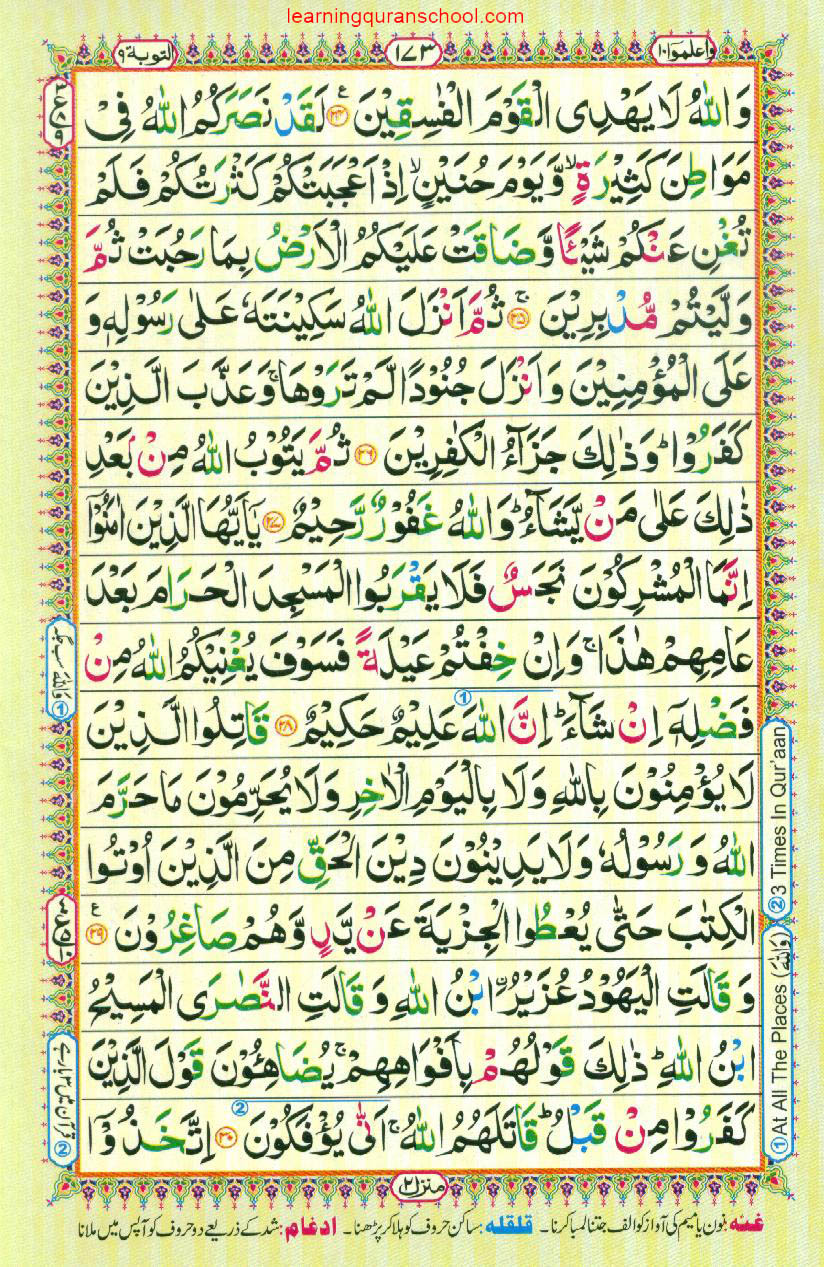 learningquranschool.com
واعلموا ١٠
١٧٣
التوبة ٩
وَاللهُ لَا يَهْدِى الْقَوْمَ الْفٰسِقِيْنَ ۝٢٤ لَقَدْ نَصَرَكُمُ اللهُ فِىْ
مَوَاطِنَ كَثِيْرَةٍ ۙ وَّيَوْمَ حُنَيْنٍ ۙ اِذْ اَعْجَبَتْكُمْ كَثْرَتُكُمْ فَلَمْ
تُغْنِ عَنْكُمْ شَيْـًٔا وَّضَاقَتْ عَلَيْكُمُ الْاَرْضُ بِمَا رَحُبَتْ ثُمَّ
وَلَّيْتُمْ مُّدْبِرِيْنَ ۝٢٥ ۚ ثُمَّ اَنْزَلَ اللهُ سَكِيْنَتَهٗ عَلٰى رَسُوْلِهٖ وَ
عَلَى الْمُؤْمِنِيْنَ وَاَنْزَلَ جُنُوْدًا لَّمْ تَرَوْهَا ۚ وَعَذَّبَ الَّذِيْنَ
كَفَرُوْا ؕ وَذٰلِكَ جَزَآءُ الْكٰفِرِيْنَ ۝٢٦ ثُمَّ يَتُوْبُ اللهُ مِنْۢ بَعْدِ
ذٰلِكَ عَلٰى مَنْ يَّشَآءُ ؕ وَاللهُ غَفُوْرٌ رَّحِيْمٌ ۝٢٧ يٰۤاَيُّهَا الَّذِيْنَ اٰمَنُوْۤا
اِنَّمَا الْمُشْرِكُوْنَ نَجَسٌ فَلَا يَقْرَبُوا الْمَسْجِدَ الْحَرَامَ بَعْدَ
عَامِهِمْ هٰذَا ۚ وَاِنْ خِفْتُمْ عَيْلَةً فَسَوْفَ يُغْنِيْكُمُ اللهُ مِنْ
فَضْلِهٖۤ اِنْ شَآءَ ؕ اِنَّ اللهَ عَلِيْمٌ حَكِيْمٌ ۝٢٨ قَاتِلُوا الَّذِيْنَ
لَا يُؤْمِنُوْنَ بِاللهِ وَلَا بِالْيَوْمِ الْاٰخِرِ وَلَا يُحَرِّمُوْنَ مَا حَرَّمَ
اللهُ وَرَسُوْلُهٗ وَلَا يَدِيْنُوْنَ دِيْنَ الْحَقِّ مِنَ الَّذِيْنَ اُوْتُوا
الْكِتٰبَ حَتّٰى يُعْطُوا الْجِزْيَةَ عَنْ يَّدٍ وَّهُمْ صَاغِرُوْنَ ۝٢٩ ع
وَقَالَتِ الْيَهُوْدُ عُزَيْرُ ۨابْنُ اللهِ وَقَالَتِ النَّصٰرَى الْمَسِيْحُ
ابْنُ اللهِ ؕ ذٰلِكَ قَوْلُهُمْ بِاَفْوَاهِهِمْ ۚ يُضَاهِـُٔوْنَ قَوْلَ الَّذِيْنَ
كَفَرُوْا مِنْ قَبْلُ ؕ قَاتَلَهُمُ اللهُ ۚ اَنّٰى يُؤْفَكُوْنَ ۝٣٠ اِتَّخَذُوْۤا
② 3 Times In Qur'aan
① At All The Places (وَاللهُ)
منزل ٢
غنه: نون یا میم کی آواز کو الف جتنا لمبا کرنا۔ قلقله: ساکن حروف کو ہلا کر پڑھنا۔ ادغام: شد کے ذریعے دو حروف کو آپس میں ملانا